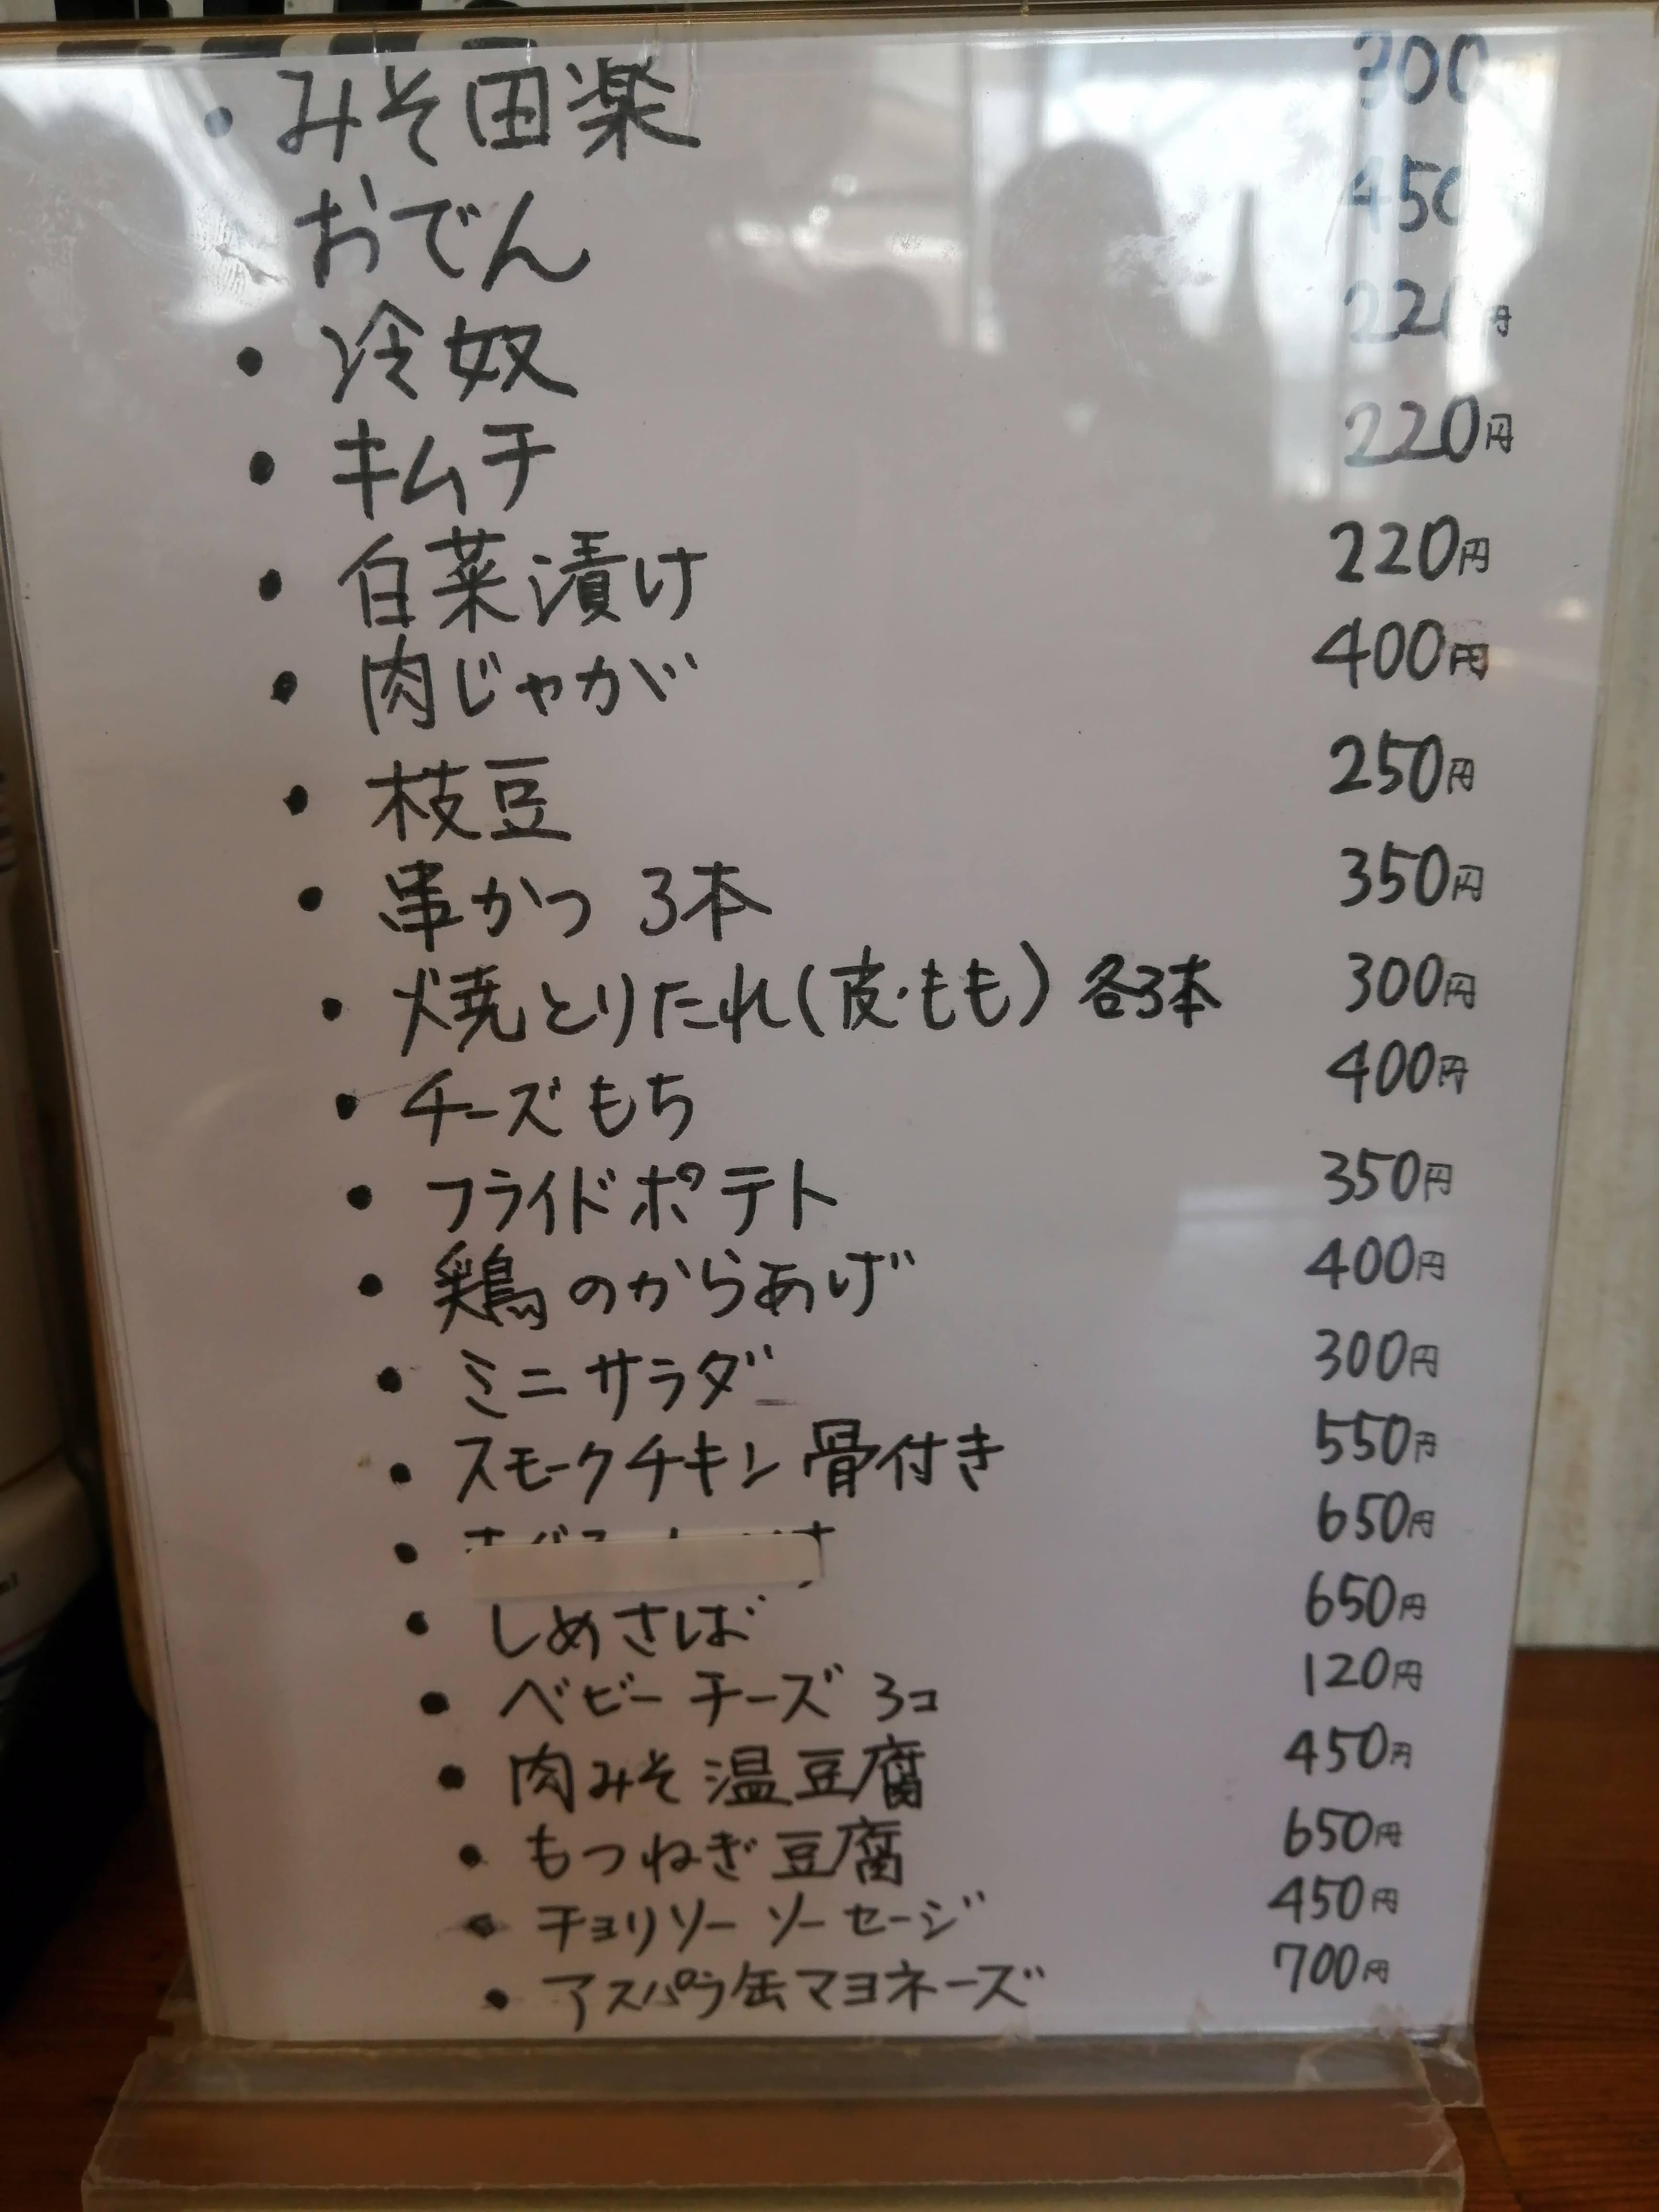 ・みそ田楽 300
おでん 450
・冷奴 220円
・キムチ 220円
・白菜漬け 220円
・肉じゃが 400円
・枝豆 250円
・串かつ 3本 350円
・焼とりたれ(皮・もも) 各3本 300円
・チーズもち 400円
・フライドポテト 350円
・鶏のからあげ 400円
・ミニサラダ 300円
・スモークチキン骨付き 550円
・ 650円
・しめさば 650円
・ベビーチーズ 3コ 120円
・肉みそ温豆腐 450円
・もつねぎ豆腐 650円
・チョリソーソーセージ 450円
・アスパラ缶マヨネーズ 700円